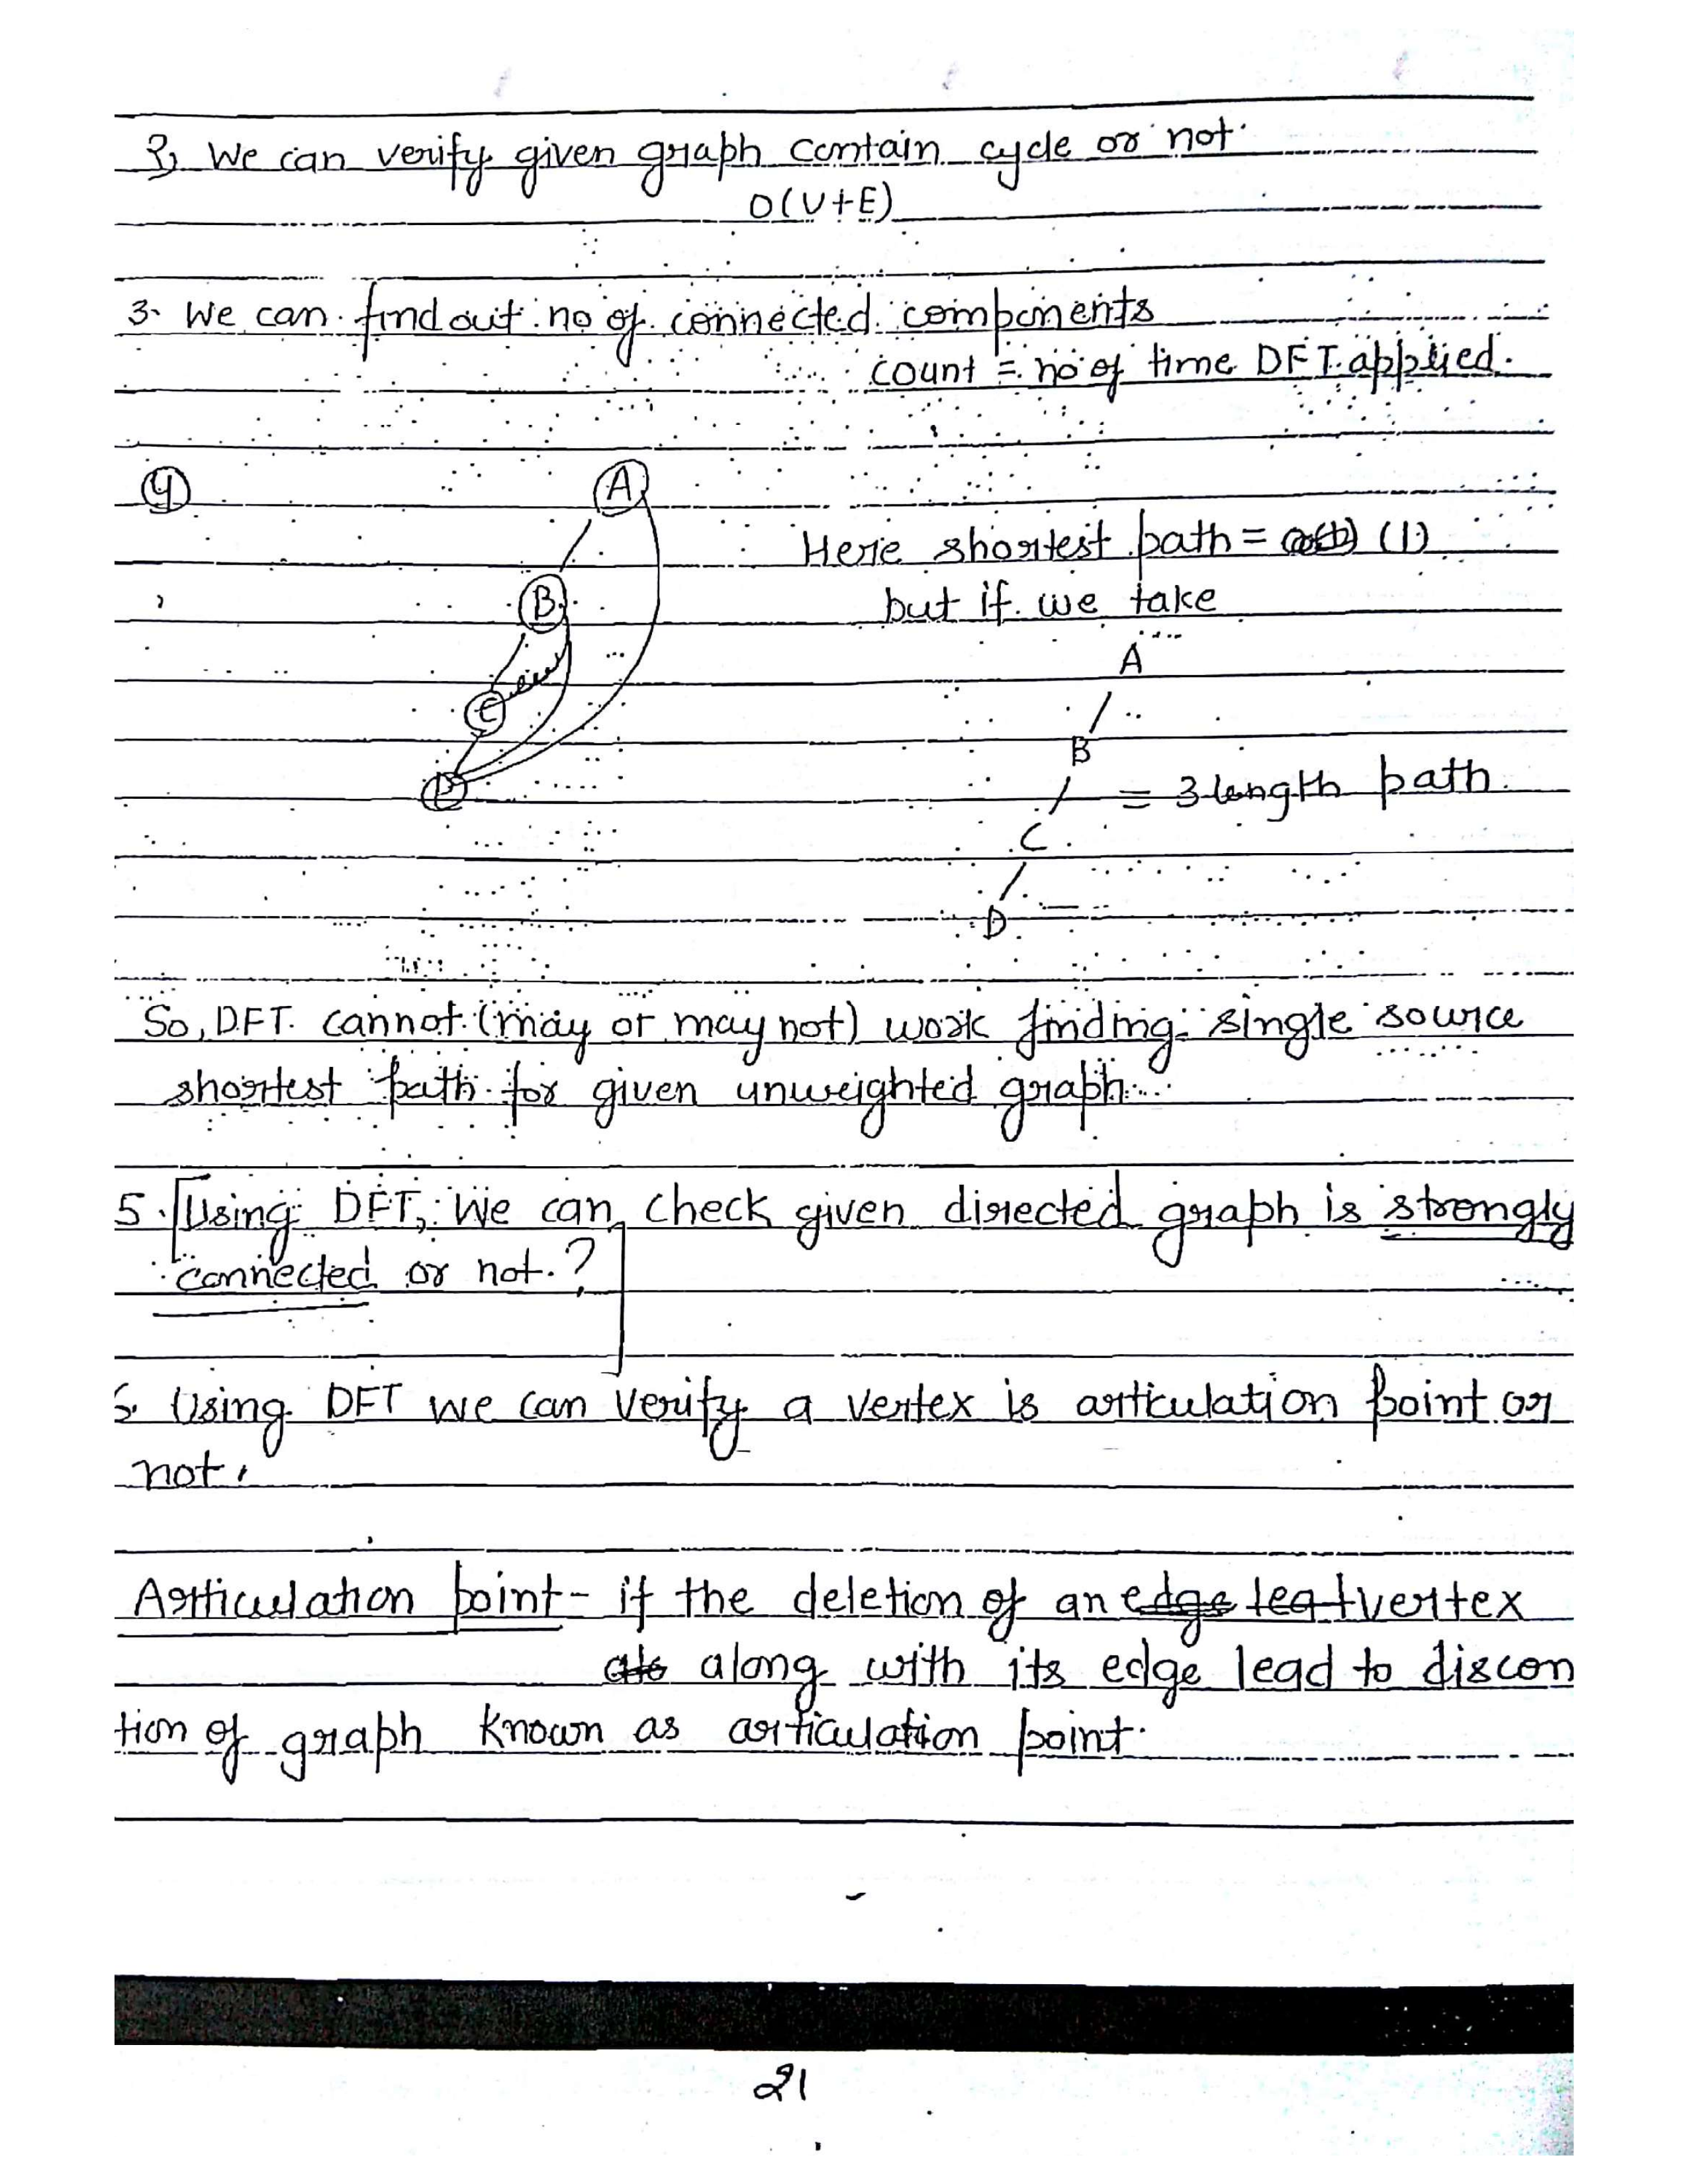 2, We can verify given graph contain cycle or not.
O(V+E)
3. We can find out no of connected components
count = no of time DFT applied.
4
A
B
C
D
Here shortest path = (1)
but if we take
A
B
= 3 length path
C
D
So, DFT cannot (may or may not) work finding single source
shortest path for given unweighted graph.
5. Using DFT, We can check given directed graph is strongly
connected or not.?
6. Using DFT we can verify a vertex is articulation point or
not.
Articulation point - if the deletion of an edge vertex
along with its edge lead to discon
tion of graph known as articulation point.
21